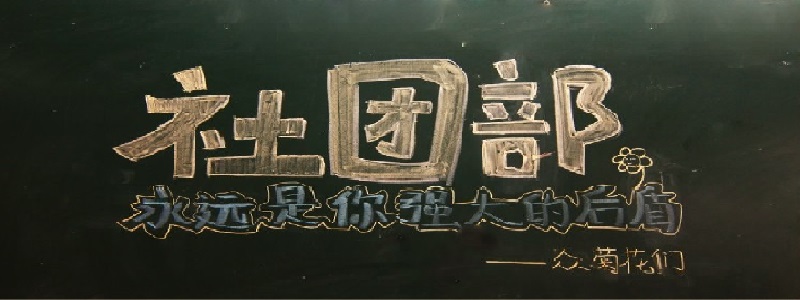 社团部
永远是你强大的后盾
——众菊花们